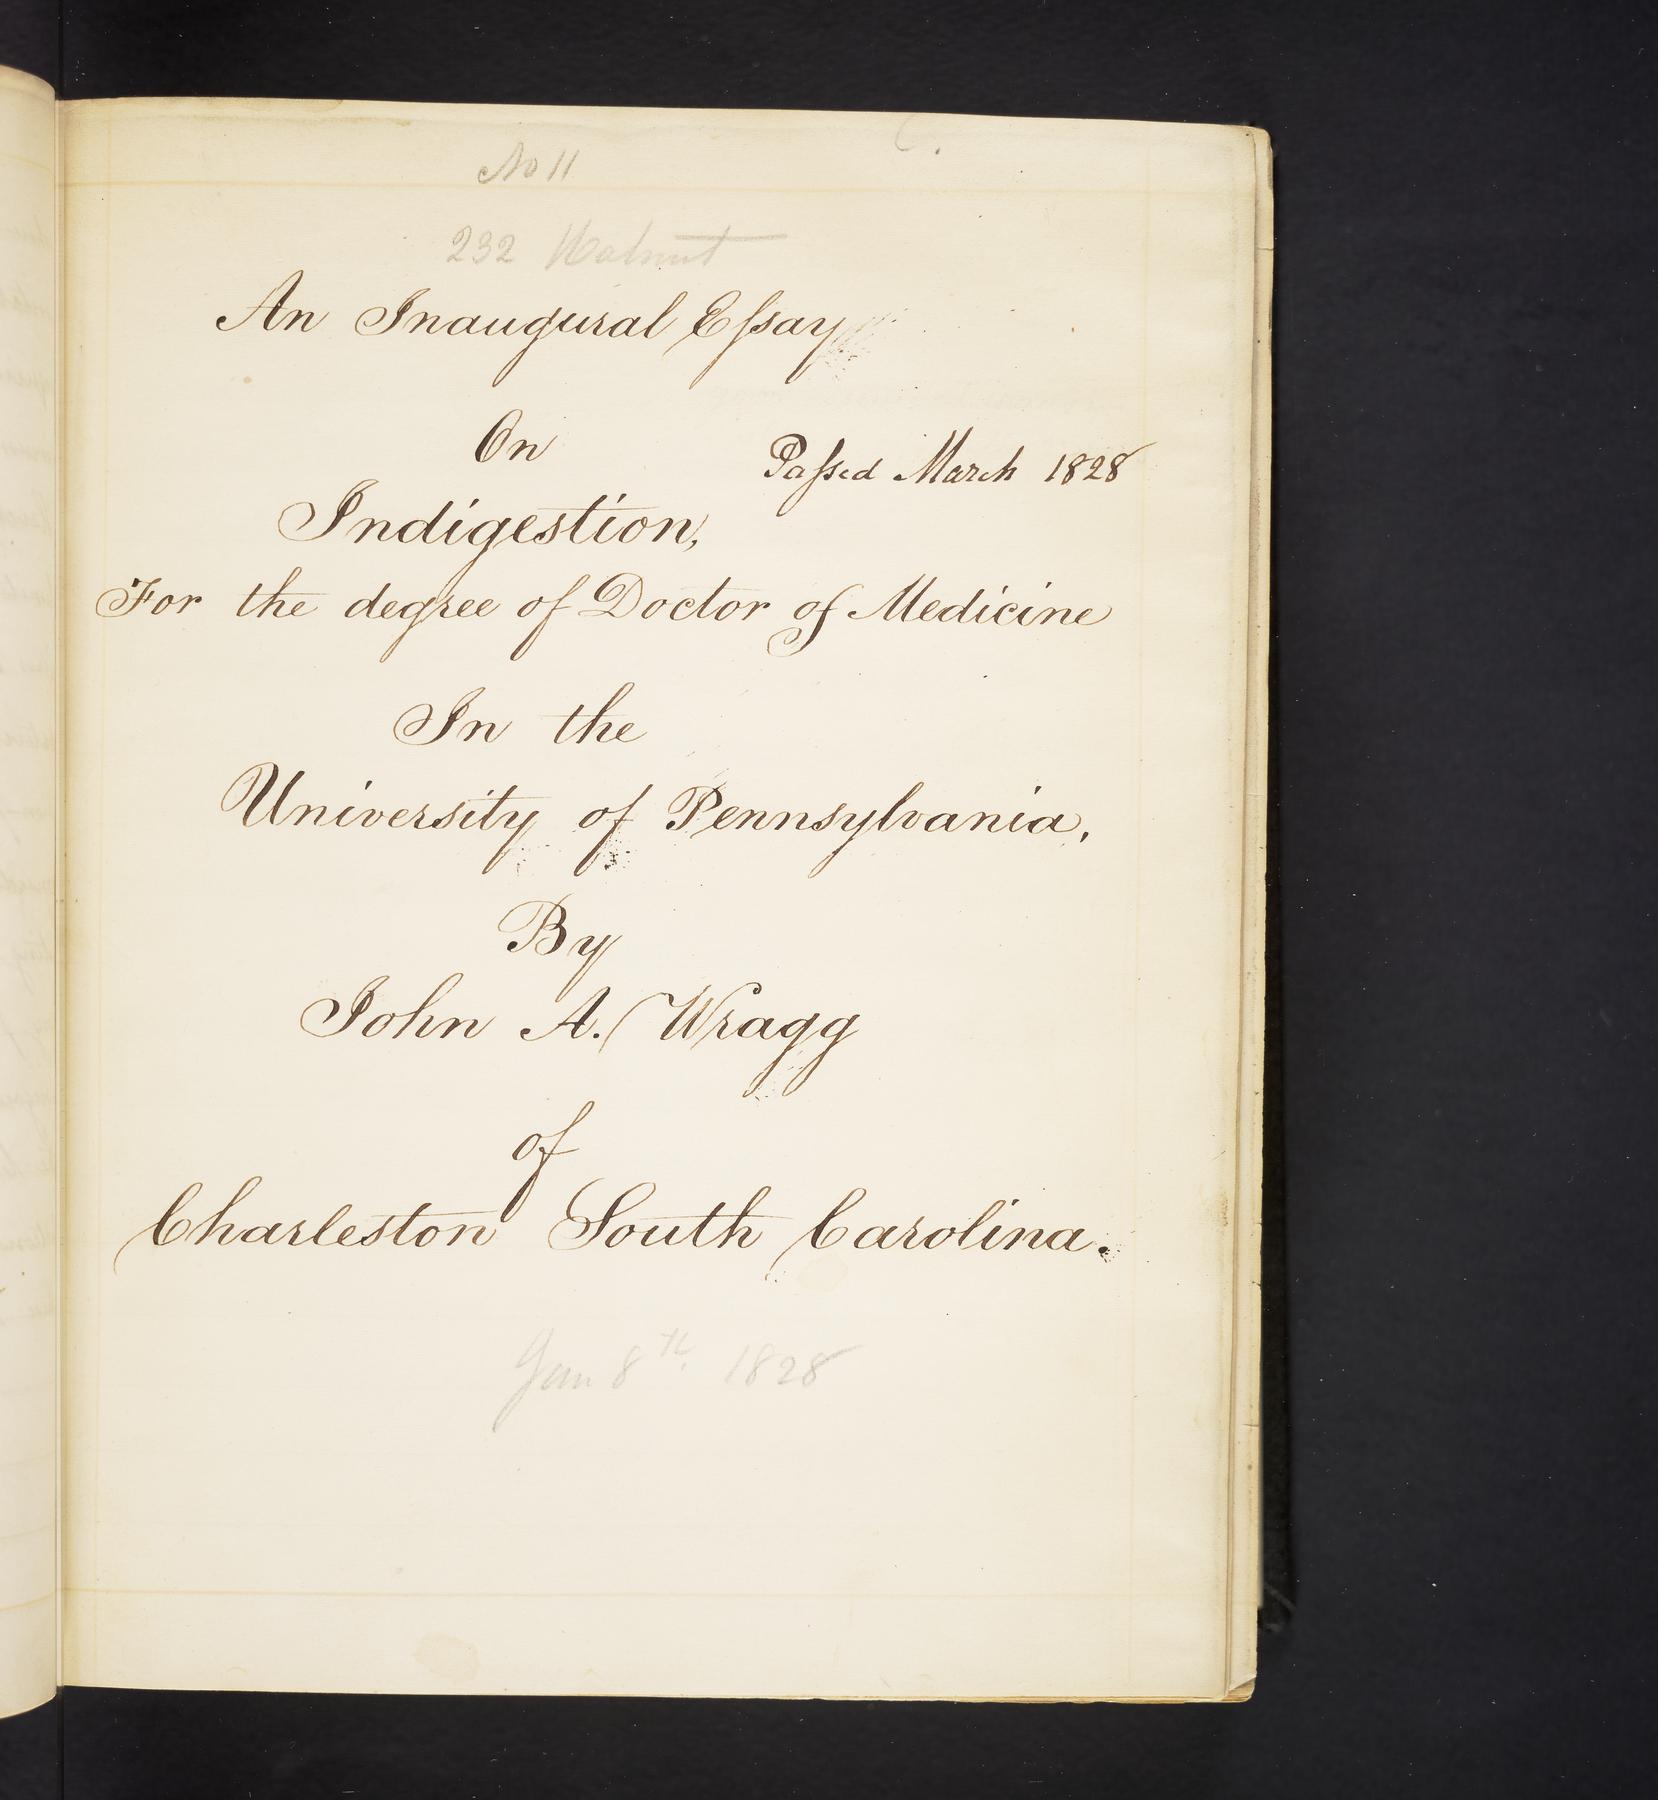 No 11
232 Walnut
An Inaugural Eſsay
On
Paſsed March 1828
Indigestion,
For the degree of Doctor of Medicine
In the
University of Pennsylvania,
By
John A. Wragg
of
Charleston South Carolina.
Jan 8th. 1828